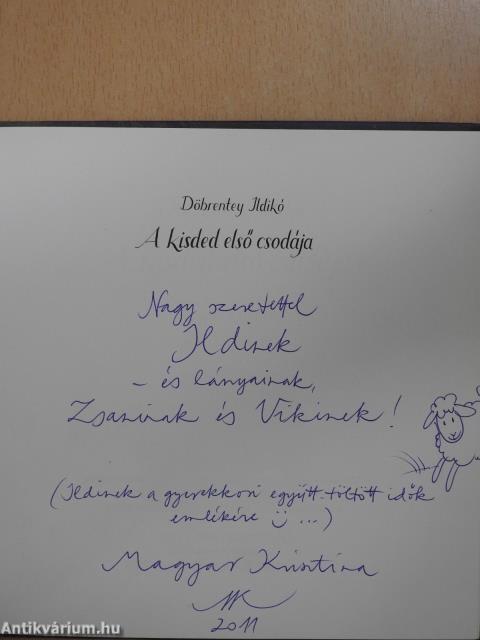 Döbrentey Ildikó
A kisded első csodája
Nagy szeretettel
Ildinek
– és lányainak,
Zsaninak és Vikinek!
(Ildinek a gyerekkori együtt töltött idők
emlékére ...)
Magyar Krisztina
MK
2011
Antikvárium.hu